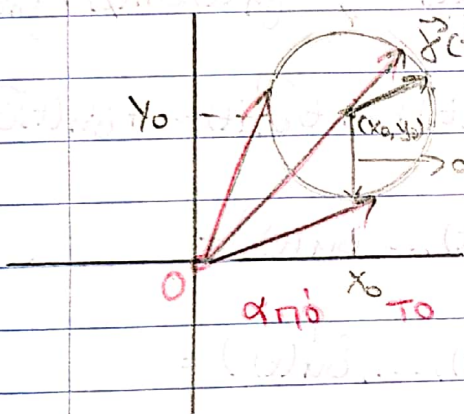 γ(
y₀
(x₀, y₀)
O
x₀
από το